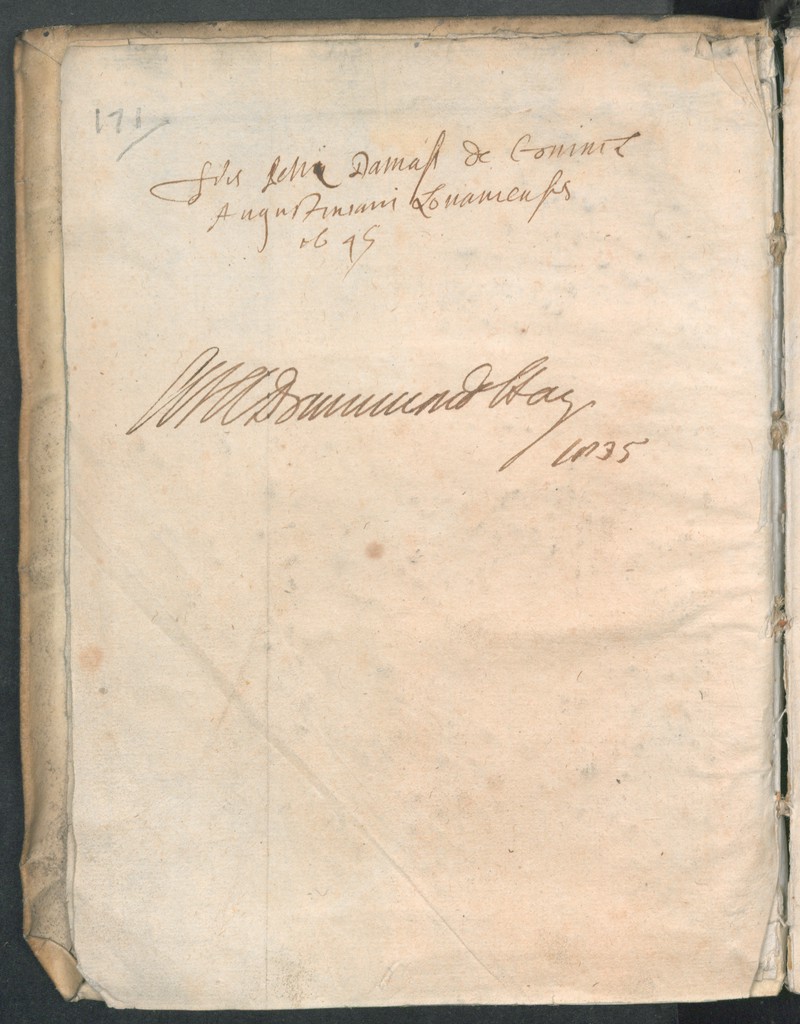 171
Felix Damast de Coninck
Augustiniani Lovaniensis
1645
Drummond Hay
1835